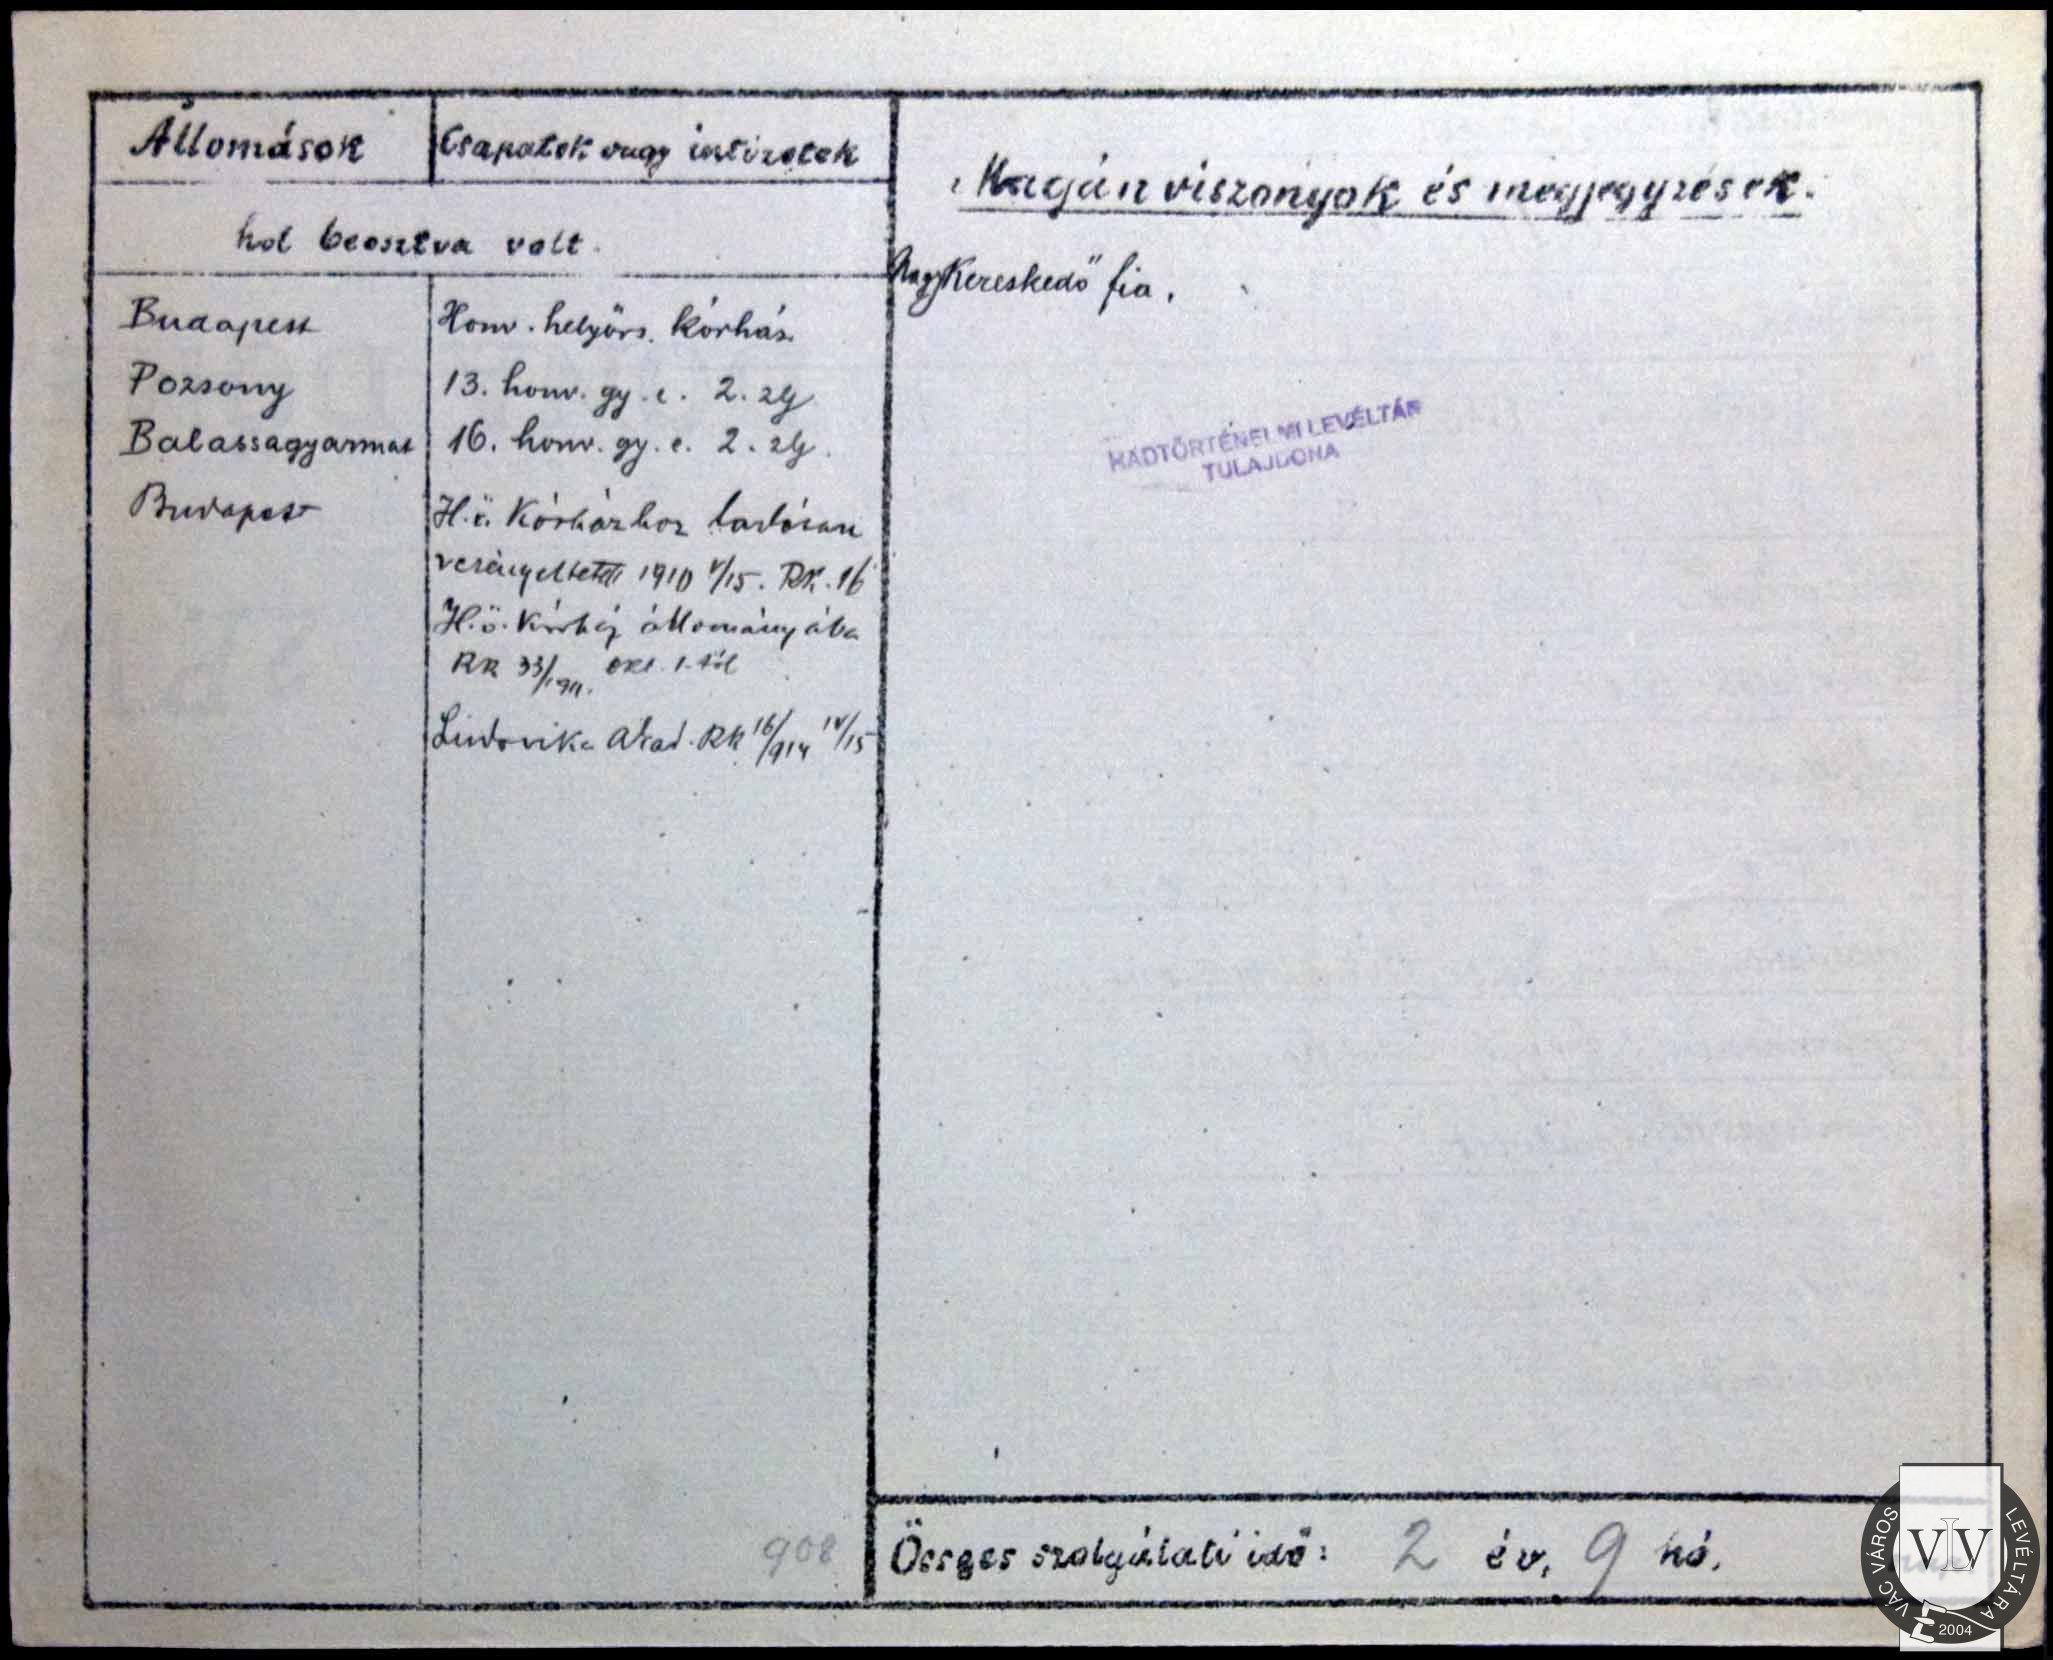 Állomások
Csapatok vagy intézetek
hol beosztva volt.
Magán viszonyok és megjegyzések.
Nagykereskedő fia.
Budapest
Honv. helyőrs. kórház
Pozsony
13. honv. gy. e. 2. zlj
Balassagyarmat
16. honv. gy. e. 2. zlj.
Budapest
H. ö. Kórházhoz tartósan
vezényeltetett 1910 V/15. RK. 16
H. ö. Kórház állományába
RK 33/1911. okt. 1-től
Ludovika Akad. RK 16/914 IV/15
HADTÖRTÉNELMI LEVÉLTÁR
TULAJDONA
908
Összes szolgálati idő: 2 év, 9 hó,
VÁC VÁROS LEVÉLTÁRA
VLV
2004